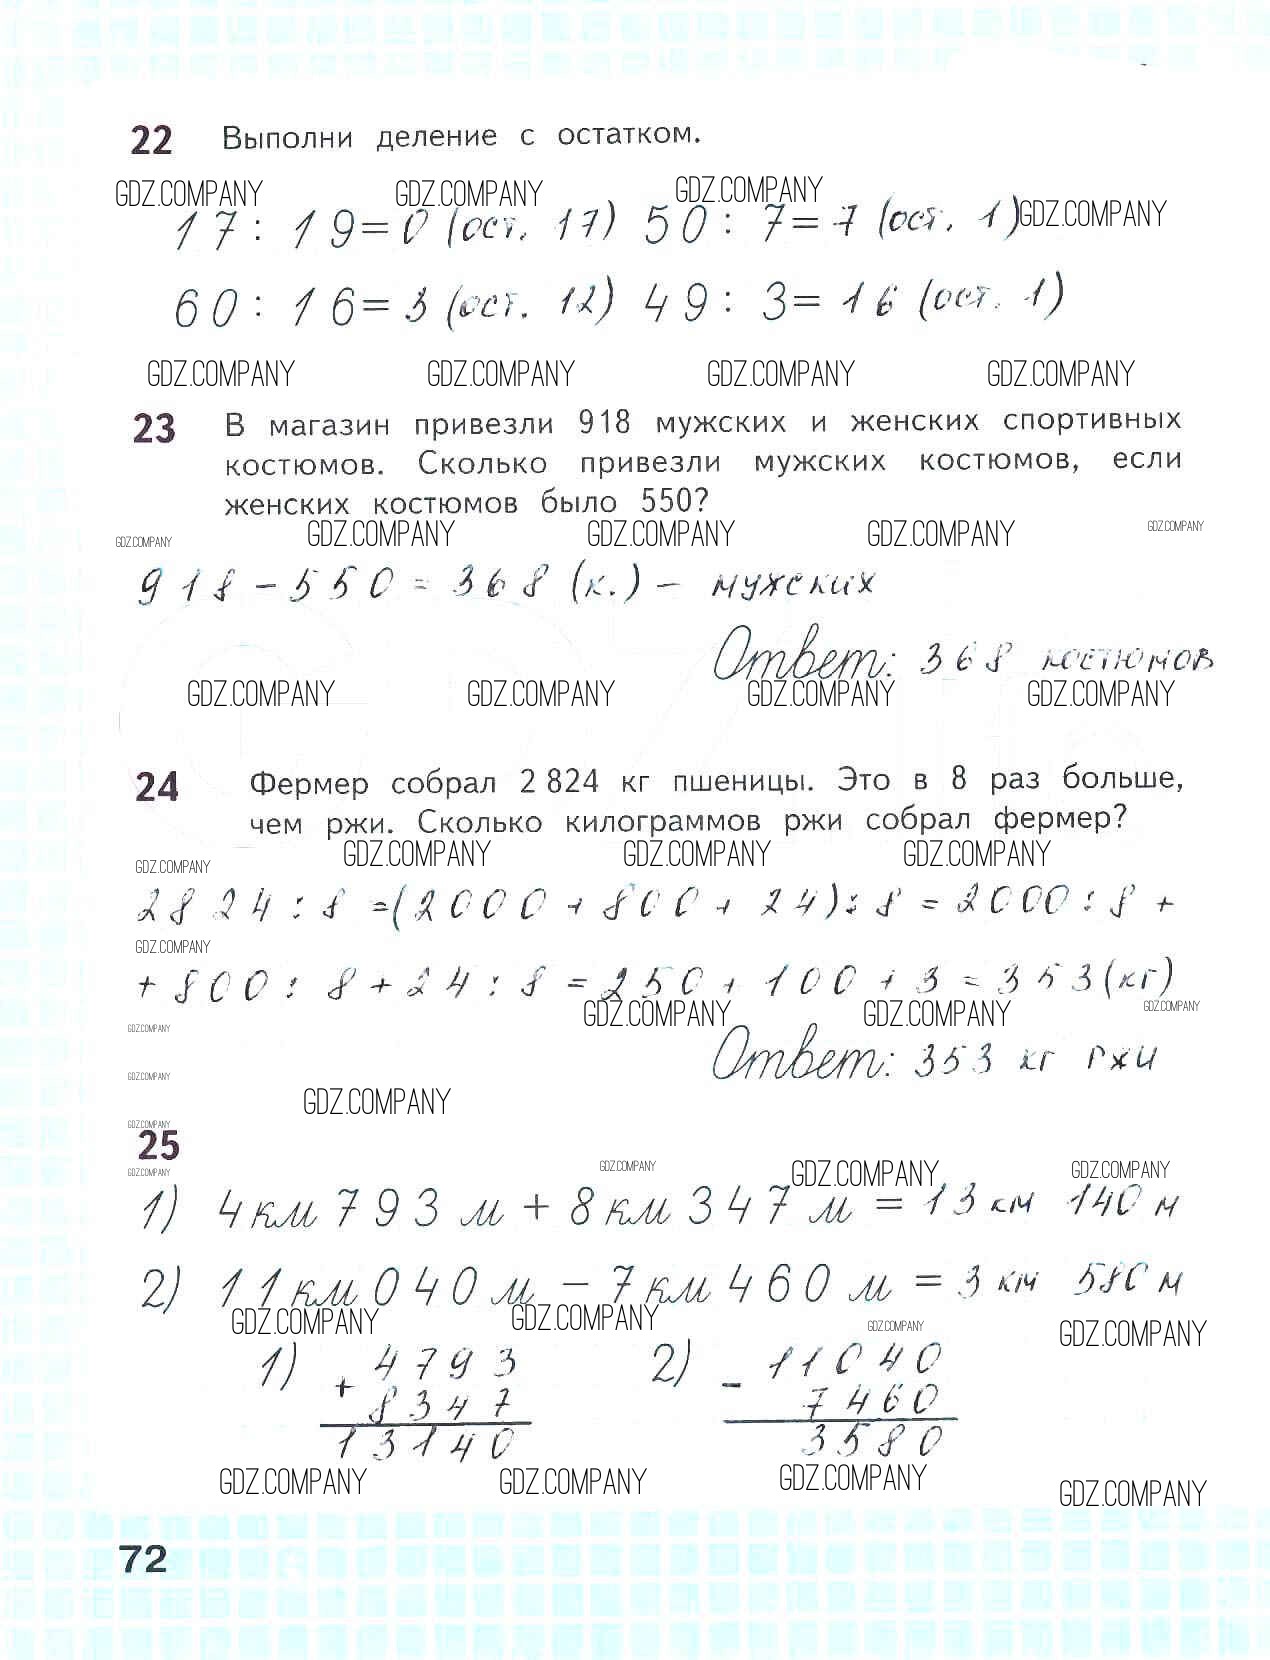 22 Выполни деление с остатком.
GDZ.COMPANY GDZ.COMPANY GDZ.COMPANY GDZ.COMPANY
17 : 19 = 0 (ост. 17) 50 : 7 = 7 (ост. 1)
60 : 16 = 3 (ост. 12) 49 : 3 = 16 (ост. 1)
GDZ.COMPANY GDZ.COMPANY GDZ.COMPANY GDZ.COMPANY
23 В магазин привезли 918 мужских и женских спортивных
костюмов. Сколько привезли мужских костюмов, если
женских костюмов было 550?
GDZ.COMPANY GDZ.COMPANY GDZ.COMPANY GDZ.COMPANY GDZ.COMPANY
918 - 550 = 368 (к.) - мужских
Ответ: 368 костюмов
GDZ.COMPANY GDZ.COMPANY GDZ.COMPANY GDZ.COMPANY
24 Фермер собрал 2 824 кг пшеницы. Это в 8 раз больше,
чем ржи. Сколько килограммов ржи собрал фермер?
GDZ.COMPANY GDZ.COMPANY GDZ.COMPANY GDZ.COMPANY
2824 : 8 = (2000 + 800 + 24) : 8 = 2000 : 8 +
GDZ.COMPANY
+ 800 : 8 + 24 : 8 = 250 + 100 + 3 = 353 (кг)
GDZ.COMPANY GDZ.COMPANY GDZ.COMPANY
GDZ.COMPANY
Ответ: 353 кг ржи
GDZ.COMPANY
GDZ.COMPANY
GDZ.COMPANY
25
GDZ.COMPANY GDZ.COMPANY GDZ.COMPANY GDZ.COMPANY
1) 4 км 793 м + 8 км 347 м = 13 км 140 м
2) 11 км 040 м - 7 км 460 м = 3 км 580 м
GDZ.COMPANY GDZ.COMPANY GDZ.COMPANY GDZ.COMPANY
1) + 4793 2) - 11040
8347 7460
13140 3580
GDZ.COMPANY GDZ.COMPANY GDZ.COMPANY GDZ.COMPANY
72